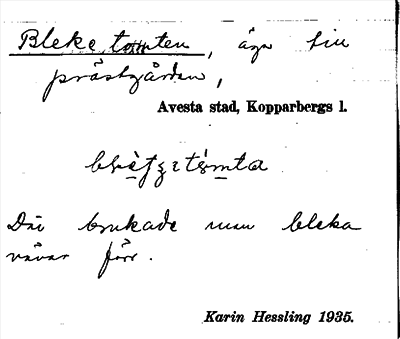 Bleketomten, äga till
prästgården,
Avesta stad, Kopparbergs l.
Där brukade man bleka
vävar förr.
Karin Hessling 1935.